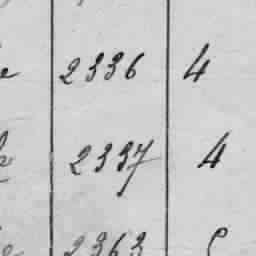 2336 4
2337 4
2363